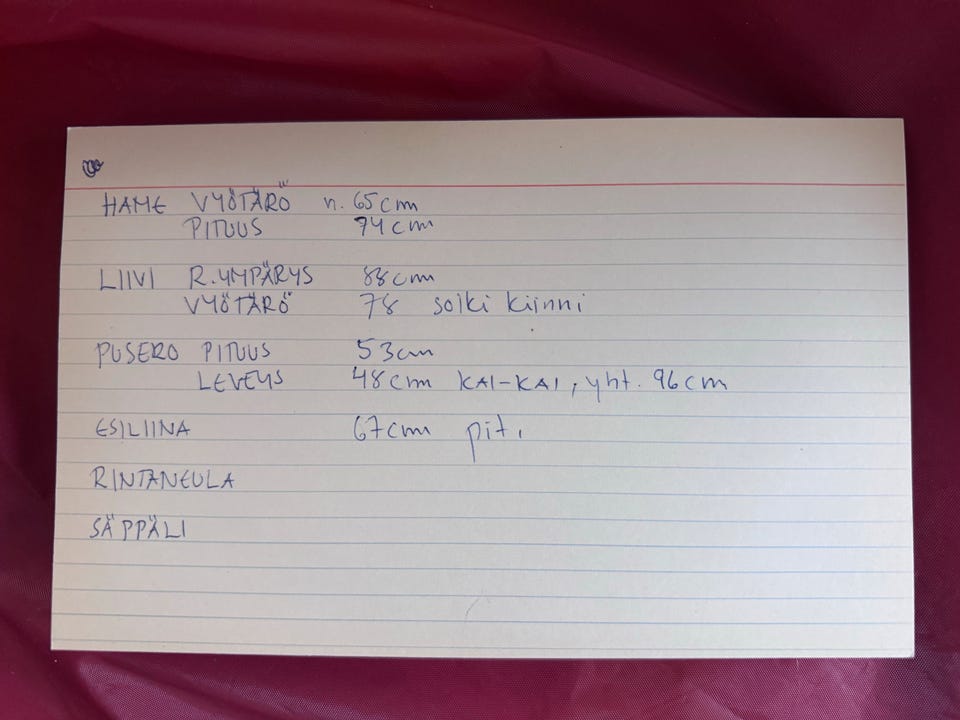 HAME VYÖTÄRÖ n. 65cm
PITUUS 74cm
LIIVI R.YMPÄRYS 88cm
VYÖTÄRÖ 78 solki kiinni
PUSERO PITUUS 53cm
LEVEYS 48cm KAI-KAI, yht. 96cm
ESILIINA 67cm pit.
RINTANEULA
SÄPPÄLI